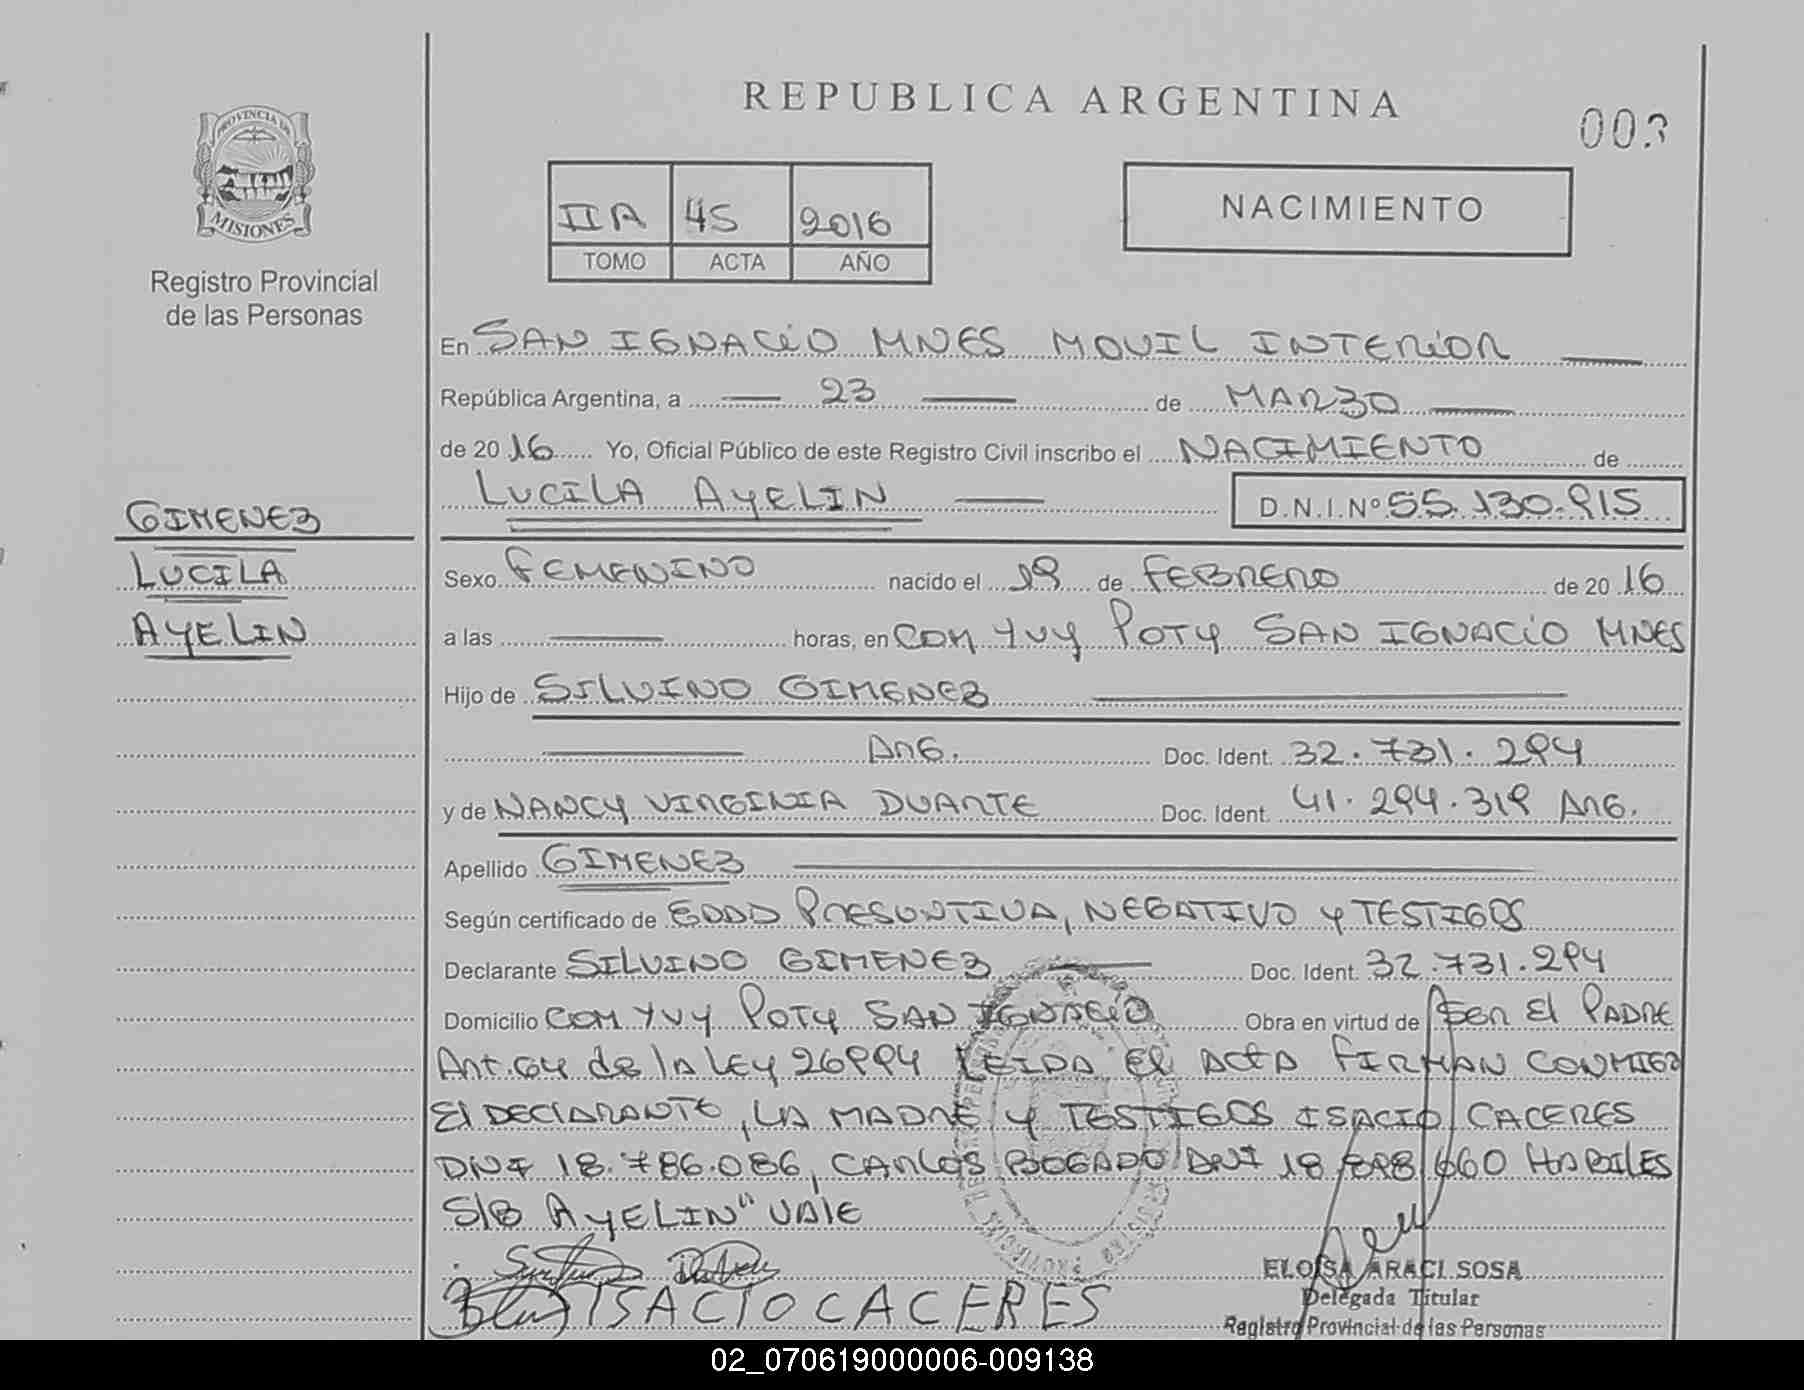 REPUBLICA ARGENTINA
003
PROVINCIA DE
MISIONES
Registro Provincial
de las Personas
IIA 45 2016
TOMO ACTA AÑO
NACIMIENTO
En SAN IGNACIO MNES MOVIL INTERIOR
República Argentina, a 23 de MARZO
de 2016 Yo, Oficial Público de este Registro Civil inscribo el NACIMIENTO de
LUCILA AYELIN D.N.I.Nº 55.130.915
GIMENEZ
LUCILA
AYELIN
Sexo FEMENINO nacido el 19 de FEBRERO de 2016
a las horas, en COM YVY POTY SAN IGNACIO MNES
Hijo de SILVINO GIMENEZ
ARG. Doc. Ident. 32.731.294
y de NANCY VIRGINIA DUARTE Doc. Ident. 41.294.319 ARG.
Apellido GIMENEZ
Según certificado de EDAD PRESUNTIVA, NEGATIVO Y TESTIGOS
Declarante SILVINO GIMENEZ Doc. Ident. 32.731.294
Domicilio COM YVY POTY SAN IGNACIO Obra en virtud de SER El PADRE
Art.64 de lA LEY 26994 LEIDA El ActA FIRMAN CONMIGO
El DEClARANTE, LA MADRE Y TESTIGOS ISACIO CACERES
DNI 18.786.086, CARLOS BOGADO DNI 18.898.660 HABILES
S/B AYELIN" VAlE
ISACIO CACERES
ELOISA ARACI SOSA
Delegada Titular
Registro Provincial de las Personas
02_070619000006-009138